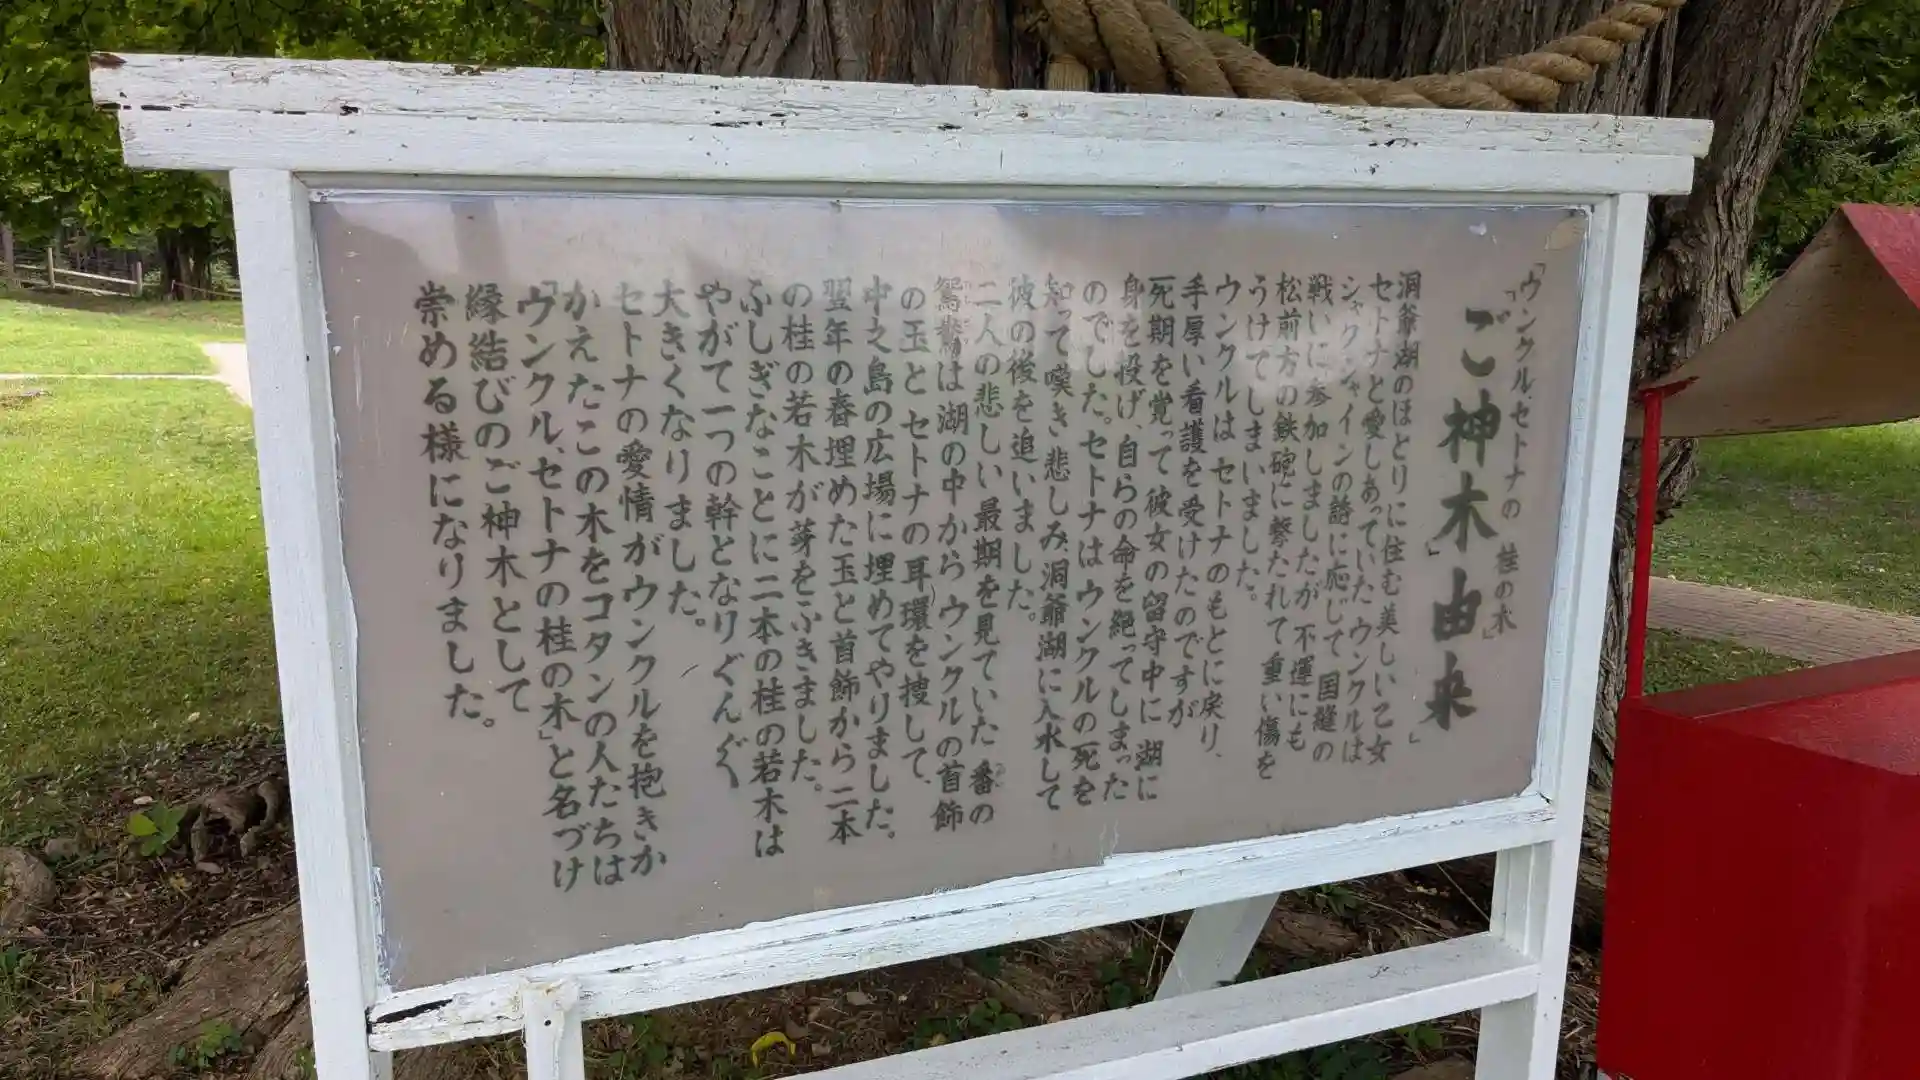 「ウンクル、セトナの 桂の木
ご神木」由来」
洞爺湖のほとりに住む美しい乙女
セトナと愛しあっていたウンクルは
シャクシャインの誘に応じて国縫の
戦いに参加しましたが不運にも
松前方の鉄砲に撃たれて重い傷を
うけてしまいました。
ウンクルはセトナのもとに戻り、
手厚い看護を受けたのですが
死期を覚って彼女の留守中に湖に
身を投げ、自らの命を絶ってしまった
のでした。セトナはウンクルの死を
知って嘆き悲しみ、洞爺湖に入水して
彼の後を追いました。
二人の悲しい最期を見ていた番の
鴛鴦は湖の中からウンクルの首飾
の玉とセトナの耳環を捜して、
中之島の広場に埋めてやりました。
翌年の春埋めた玉と首飾から二本
の桂の若木が芽をふきました。
ふしぎなことに二本の桂の若木は
やがて一つの幹となりぐんぐん
大きくなりました。
セトナの愛情がウンクルを抱きか
かえたこの木をコタンの人たちは
「ウンクル、セトナの桂の木」と名づけ
縁結びのご神木として
崇める様になりました。